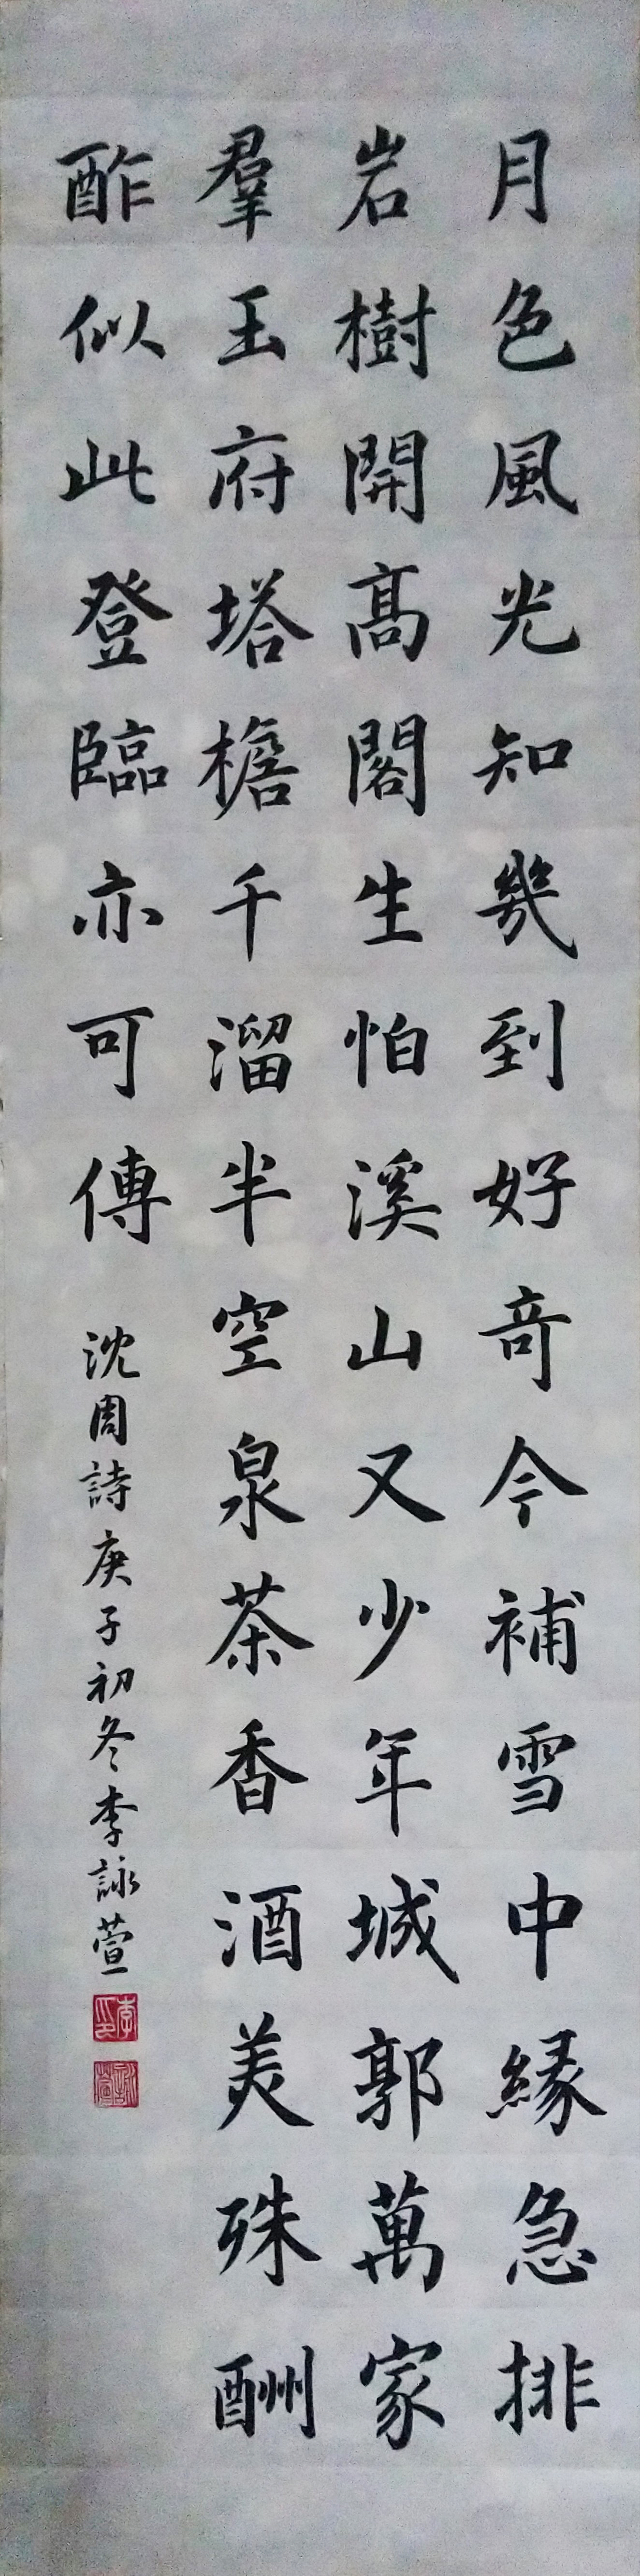 月色風光知幾到好奇今補雪中緣急排
岩樹開高閣生怕溪山又少年城郭萬家
羣玉府塔檐千溜半空泉茶香酒美殊酬
酢似此登臨亦可傳
沈周詩庚子初冬李詠萱
李印
詠萱